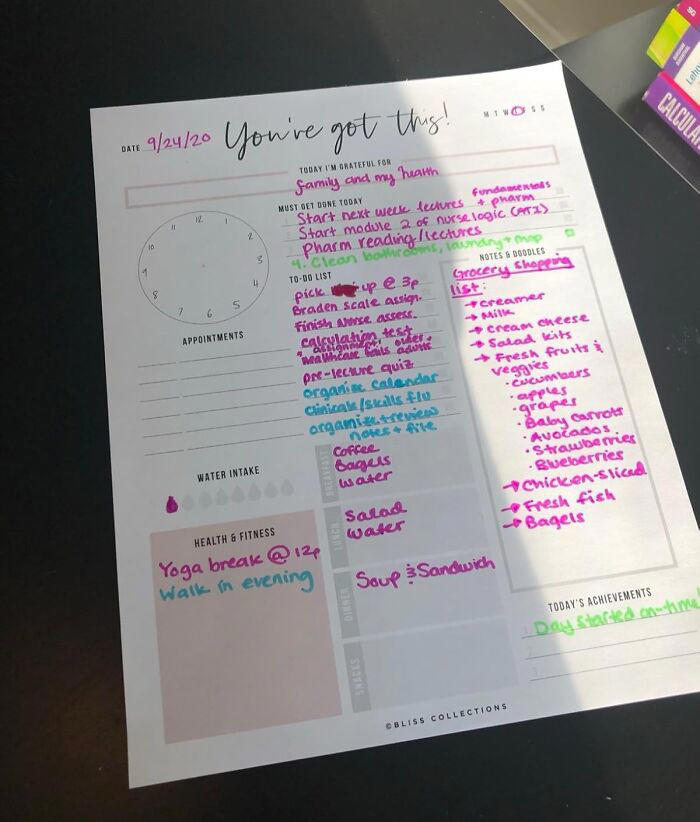 DATE 9/24/20
You've got this!
M T W T S S
TODAY I'M GRATEFUL FOR
family and my health
MUST GET DONE TODAY
fundamentals
1 Start next week lectures + pharm
2 Start module 2 of nurselogic (ATI)
3 Pharm reading/lectures
4. Clean bathrooms, laundry + mop
12
1
2
3
4
5
6
7
8
9
10
11
APPOINTMENTS
TO-DO LIST
pick up @ 3p
Braden scale assign.
Finish nurse assess.
calculation test
" assignment; older
healthcare adults
pre-lecture quiz
organize calendar
clinicals/skills f/u
organize + review
notes + file
NOTES & DOODLES
Grocery shopping
list:
→ creamer
→ Milk
→ cream cheese
→ Salad kits
→ Fresh fruits &
veggies
· cucumbers
· apples
· grapes
· Baby carrots
· Avocados
· Strawberries
· Blueberries
→ Chicken-sliced
→ Fresh fish
→ Bagels
WATER INTAKE
BREAKFAST
Coffee
Bagels
water
LUNCH
Salad
water
DINNER
Soup & Sandwich
SNACKS
HEALTH & FITNESS
Yoga break @ 12p
Walk in evening
TODAY'S ACHIEVEMENTS
1 Day started on-time!
2
3
©BLISS COLLECTIONS
SG
CALCUL